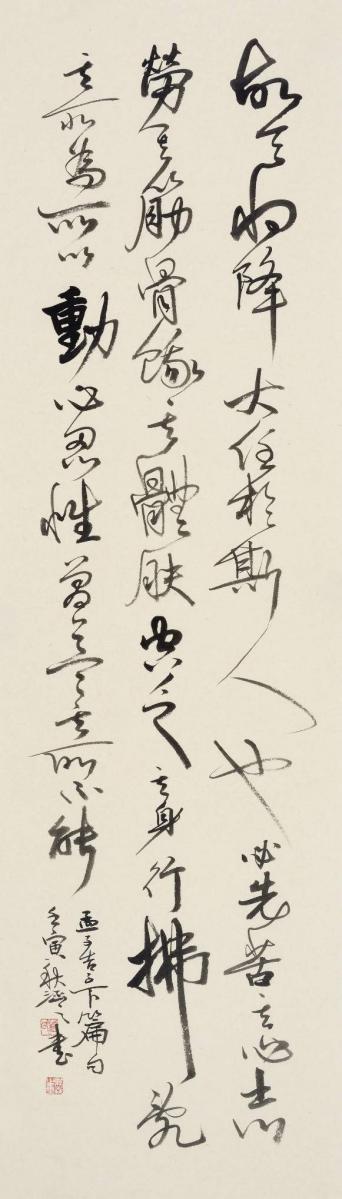 故天将降大任於斯人也必先苦其心志
勞其筋骨餓其體肤空乏其身行拂亂
其所為所以動心忍性曾益其所不能
孟子告子下篇句
壬寅秋書